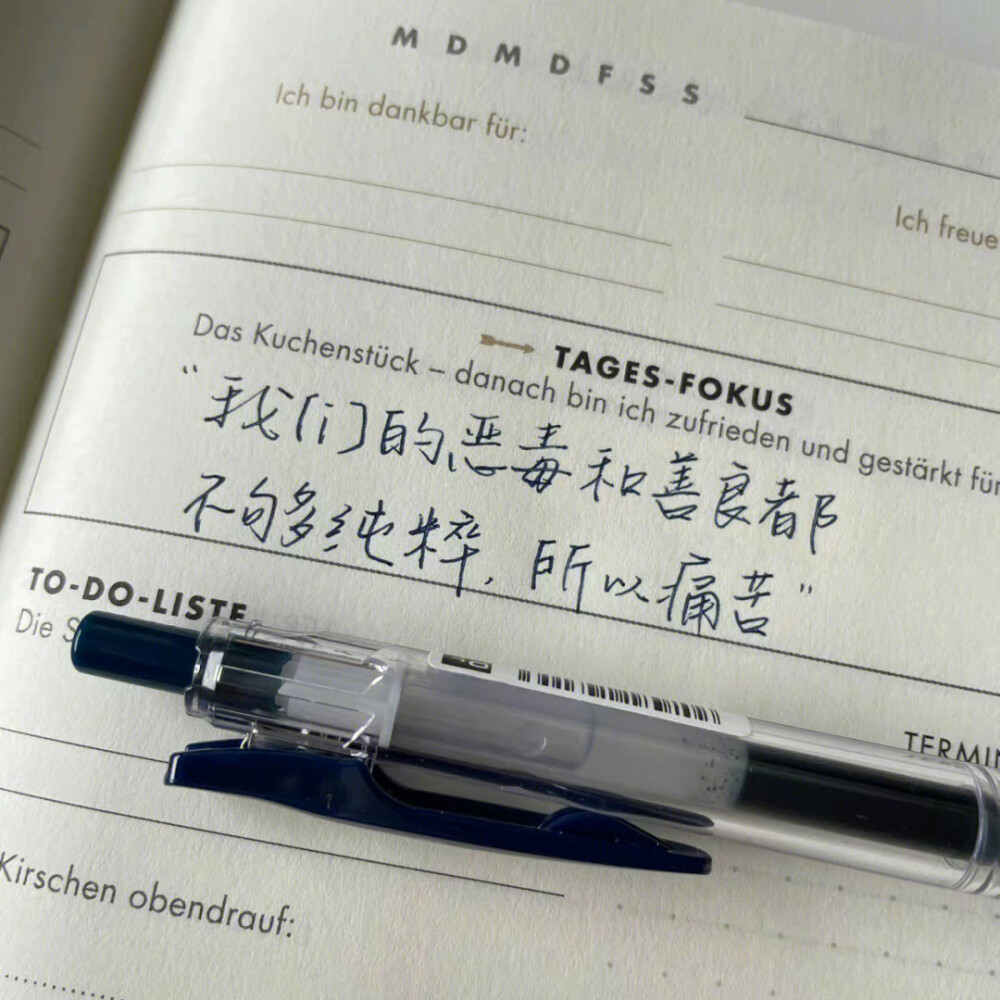 M D M D F S S
Ich bin dankbar für:
Ich freue
TAGES-FOKUS
Das Kuchenstück – danach bin ich zufrieden und gestärkt für
“我们的恶毒和善良都
不够多纯粹，所以痛苦”
TO-DO-LISTE
Die
TERMIN
Kirschen obendrauf: